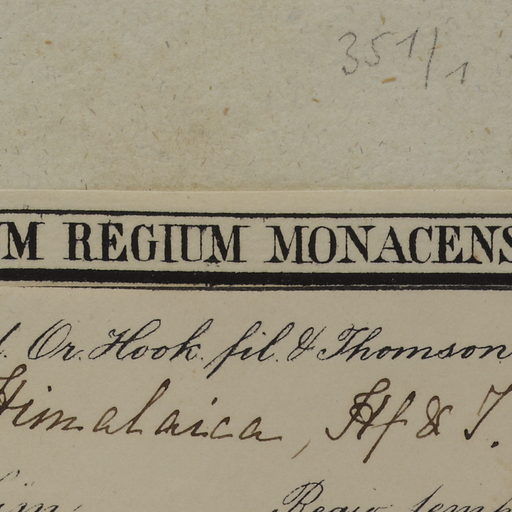 351/1
M REGIUM MONACENS
. Or. Hook. fil. & Thomson
Himalaica, Hf & T.
Regio temp